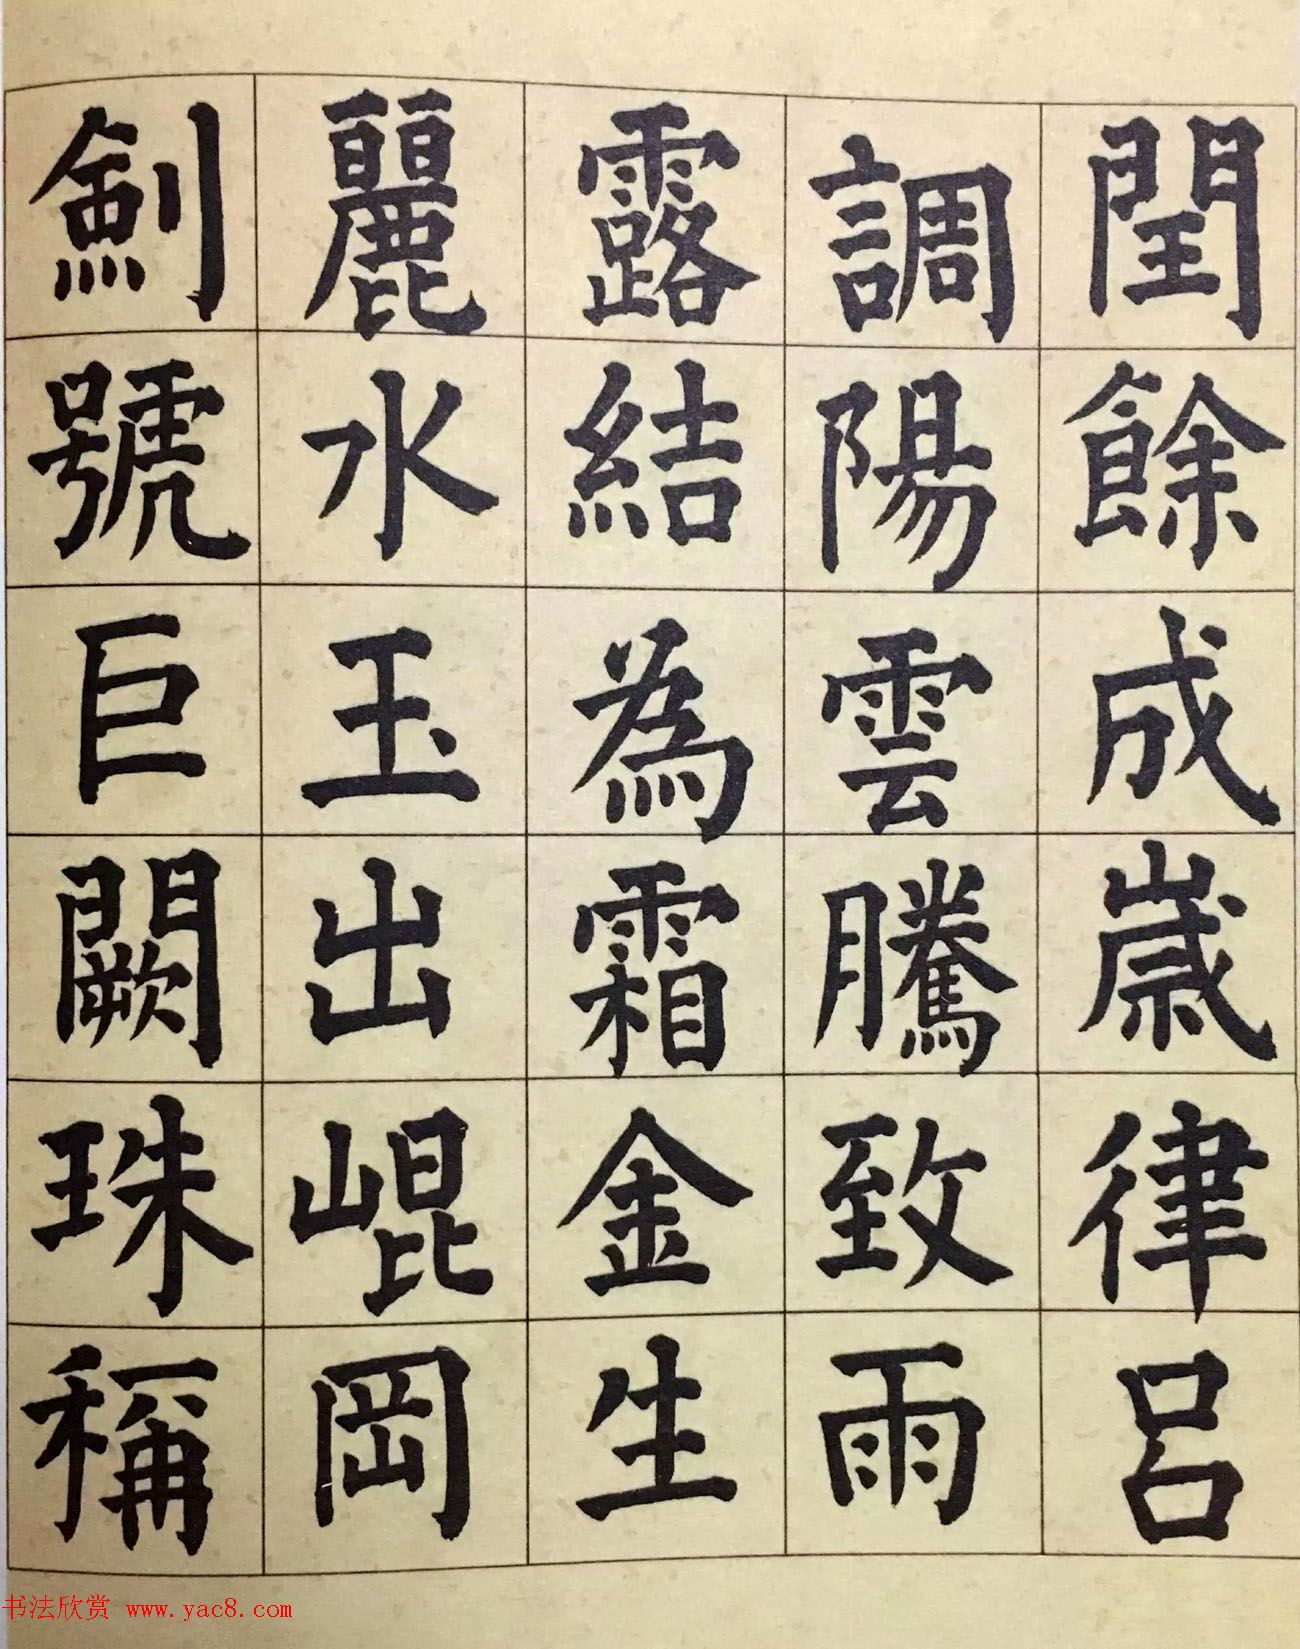 閏餘成歲律呂
調陽雲騰致雨
露結為霜金生
麗水玉出崐岡
劍號巨闕珠稱
书法欣赏 www.yac8.com